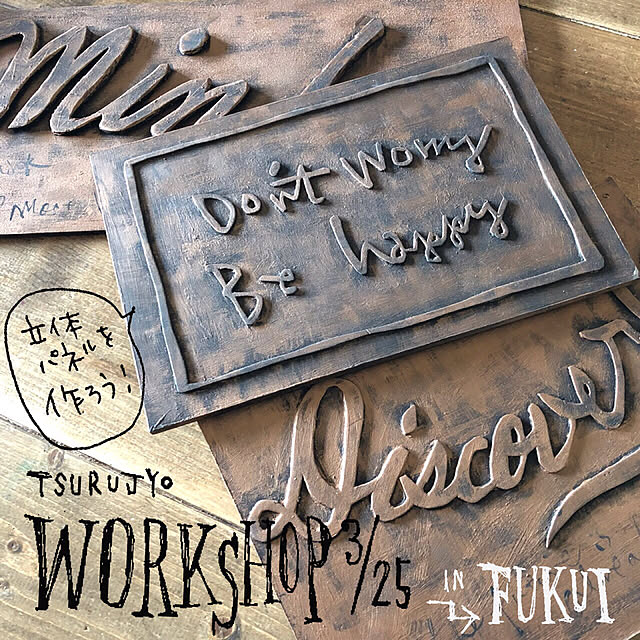 Mini
Don't Worry
Be happy
立体
パネルを
作ろう!
Discover
TSURUJYO
WORKSHOP 3/25
IN
FUKUI